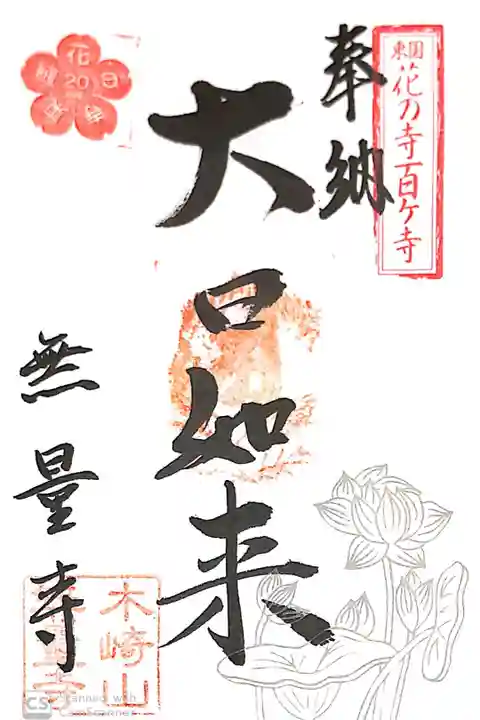 東国
花の寺百ケ寺
奉納
大日如来
無量寺
木崎山
無量寺
花
20
日
CS Scanned with
CamScanner